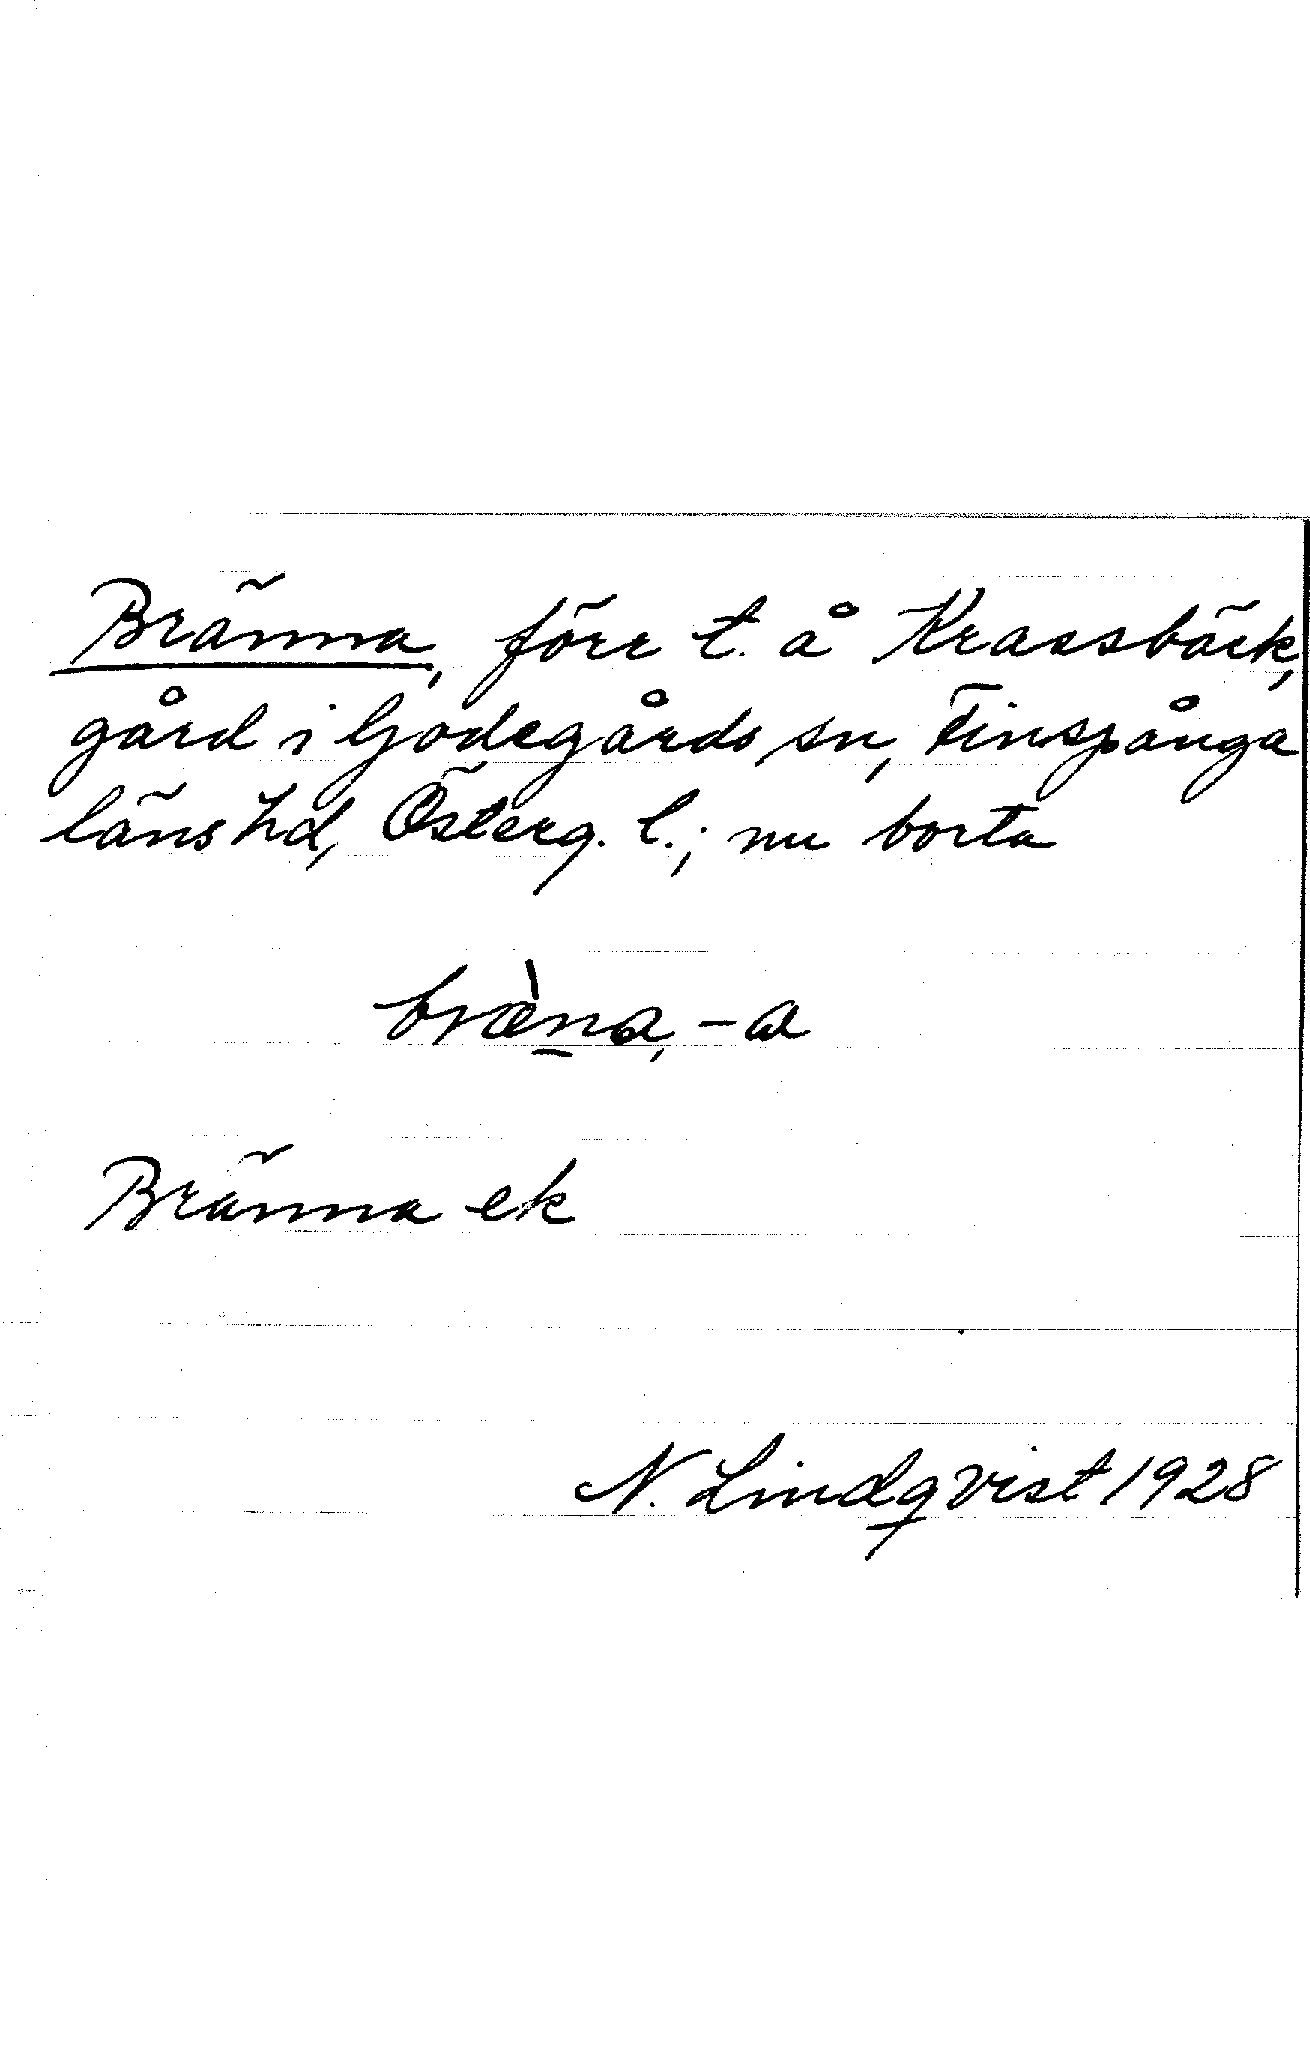 Bränna, förr t. å Krassbäck,
gård i Godegårds sn, Finspånga
läns hd, Österg. l.; nu borta
bræ̀n̲a, -a
Bränna ek
N. Lindqvist 1928